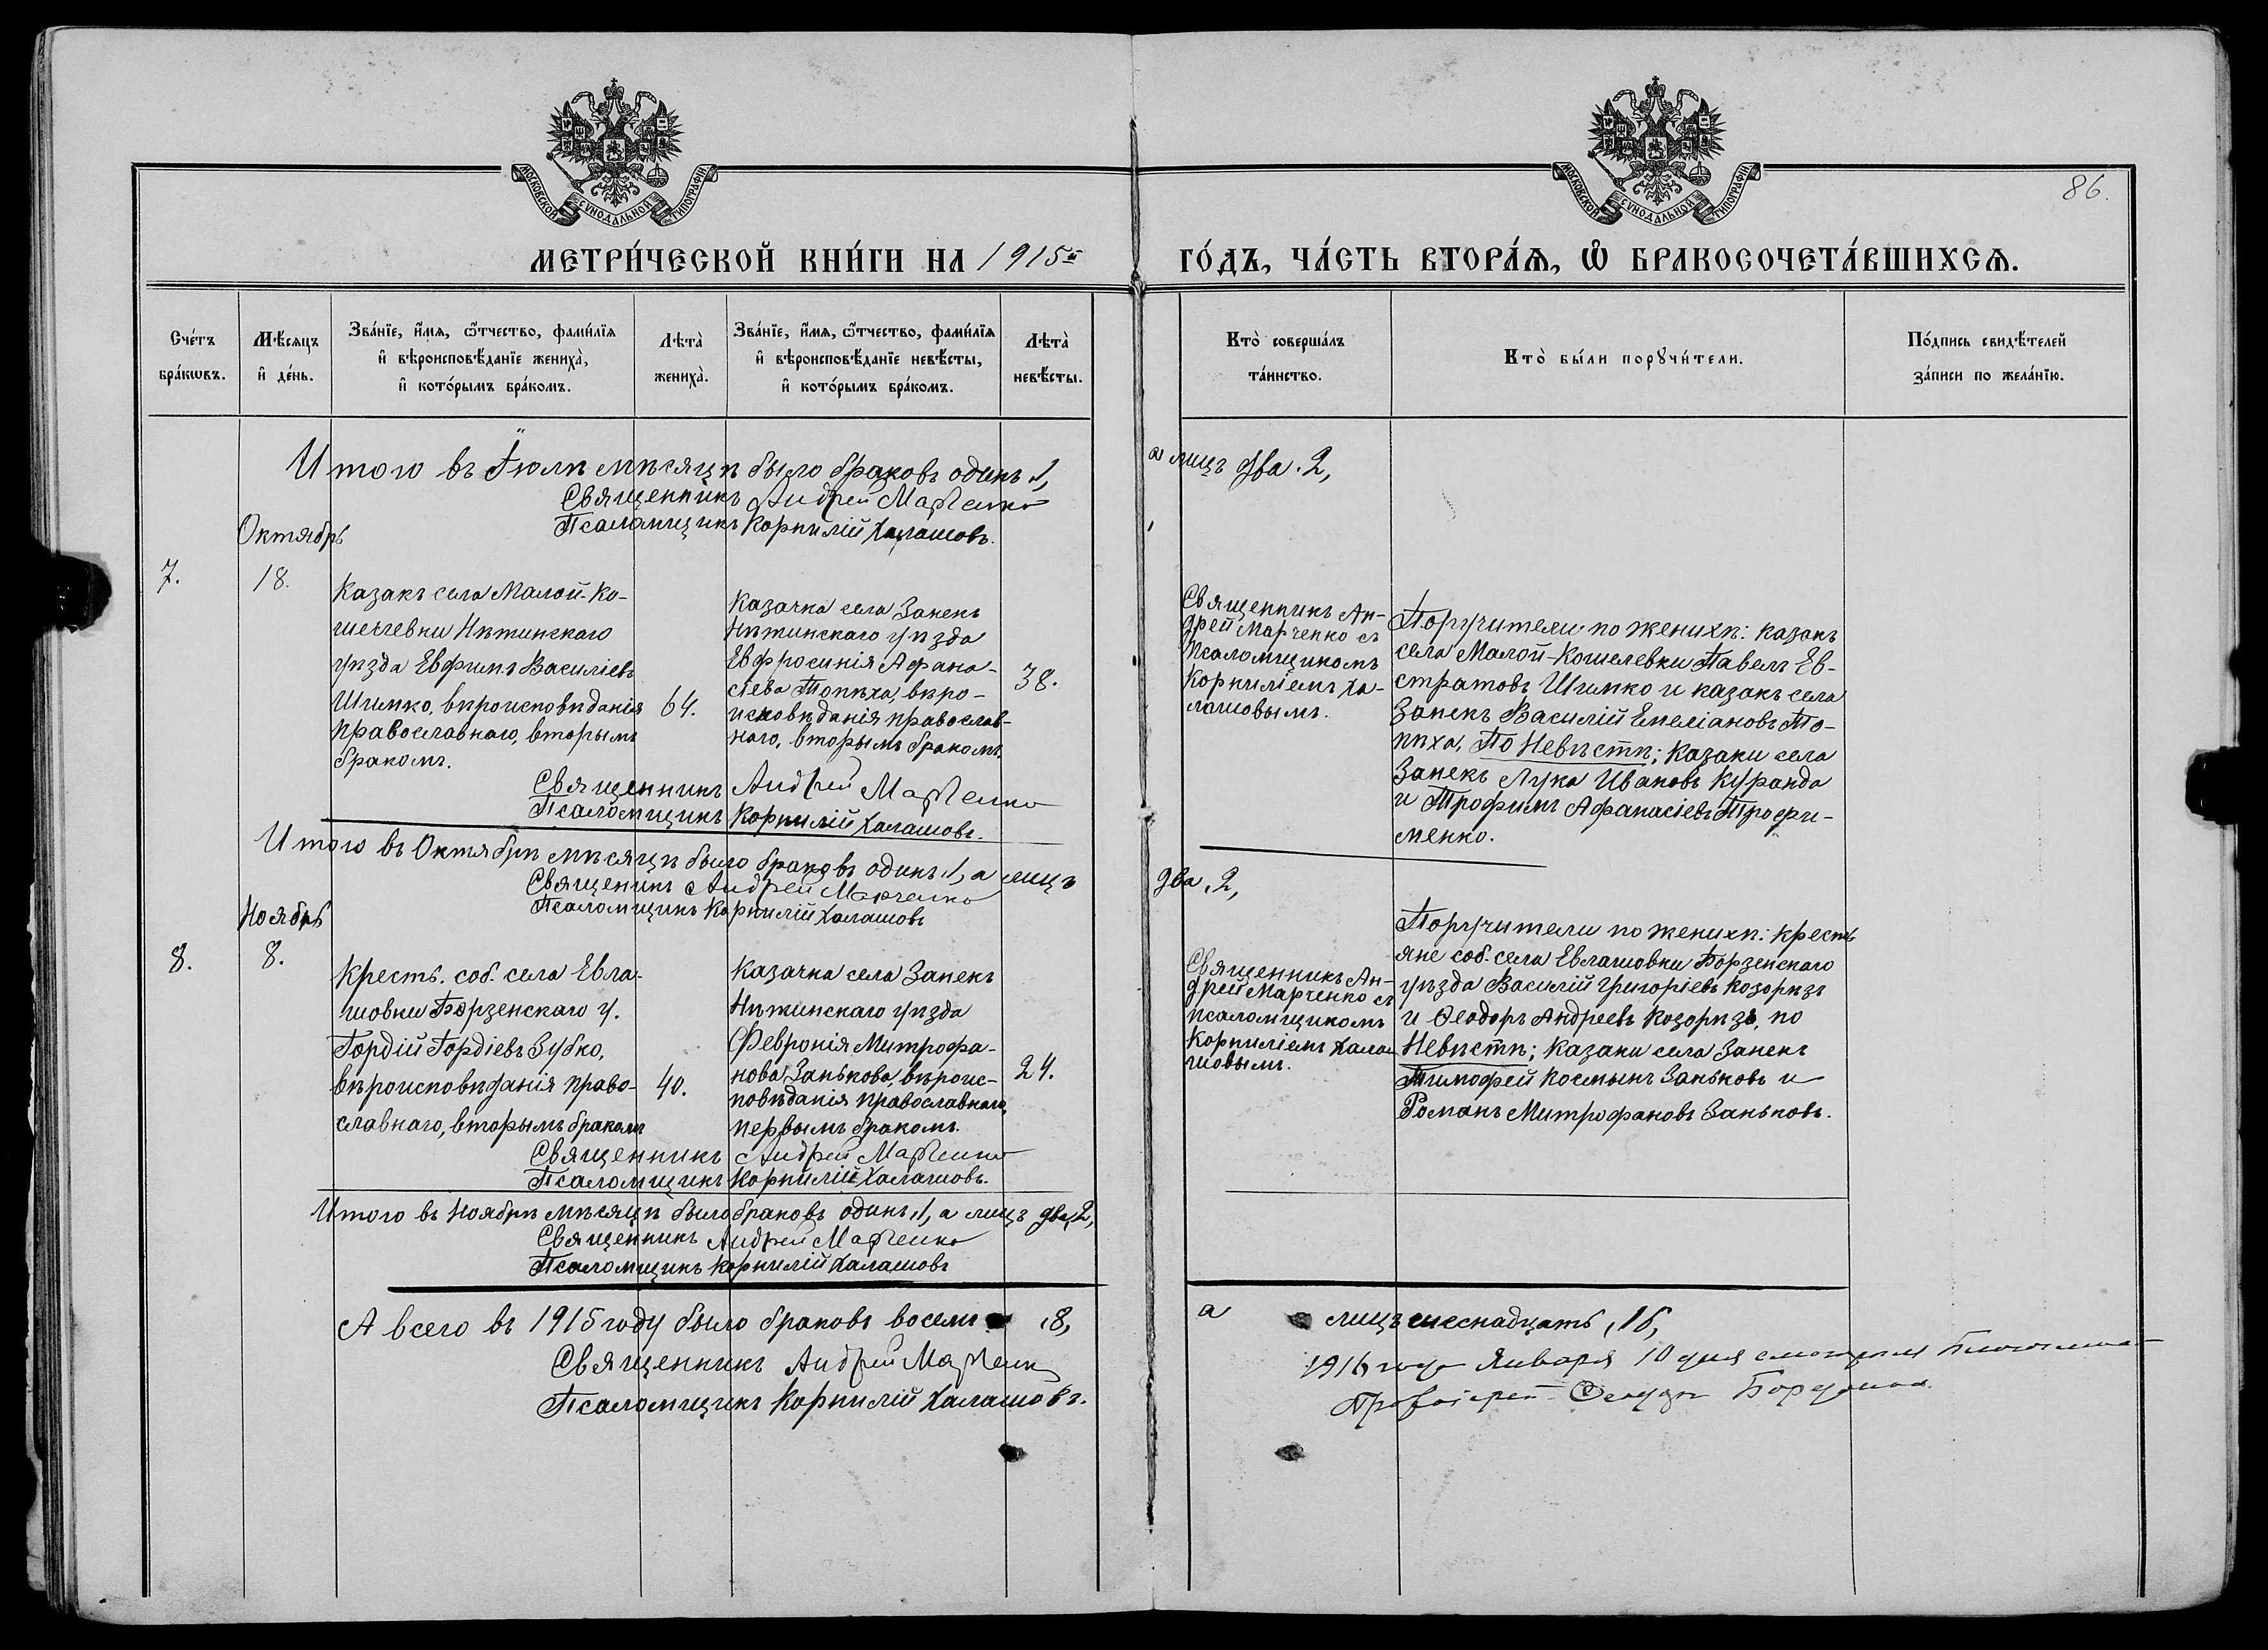 МОСКОВСКОЙ СУНОДАЛЬНОЙ ТИПОГРАФІИ
МОСКОВСКОЙ СУНОДАЛЬНОЙ ТИПОГРАФІИ
86.
МЕТРИ́ЧЕСКОЙ КНИ́ГИ НА 1915й ГО́ДЪ, ЧА́СТЬ ВТОРА́Ѧ, Ѽ БРАКОСОЧЕТА́ВШИХСѦ.
Сче́тъ
бра́кѡвъ.
Мѣ́сяцъ
и҆ де́нь.
Зва́нїе, и҆́мѧ, ѻ҆́тчество, фами́лїѧ
и҆ вѣроисповѣ́данїе жениха̀,
и҆ кото́рымъ бра́комъ.
Лѣта̀
жениха̀.
Зва́нїе, и҆́мѧ, ѻ҆́тчество, фами́лїѧ
и҆ вѣроисповѣ́данїе невѣ́сты,
и҆ кото́рымъ бра́комъ.
Лѣта̀
невѣ́сты.
Кто̀ соверша́лъ
та́инство.
Кто̀ бы́ли порꙋчи́тели.
По́дпись свидѣ́телей
за́писи по жела́нїю.
Итого въ Іюлѣ мѣсяцѣ было браковъ одинъ 1, а лицъ два. 2,
Священникъ Андрей Марченко
Псаломщикъ Корнилій Халашовъ.
Октябрь
7.
18.
Казакъ села Малой-Ко-
шелевки Нѣжинскаго
уѣзда Евфимъ Василіевъ
Шимко, вѣроисповѣданія
православнаго, вторымъ
бракомъ.
64.
Казачка села Занекъ
Нѣжинскаго уѣзда
Евфросинія Афана-
сіева Топѣха, вѣро-
исповѣданія православ-
наго, вторымъ бракомъ.
38.
Священникъ Ан-
дрей Марченко съ
псаломщикомъ
Корниліемъ Ха-
лашовымъ.
Поручители по женихѣ: казакъ
села Малой-Кошелевки Павелъ Ев-
стратовъ Шимко и казакъ села
Занекъ Василій Емеліановъ То-
пѣха, По Невѣстѣ; казаки села
Занекъ Лука Ивановъ Куранда
и Трофимъ Афанасіевъ Трофи-
менко.
Священникъ Андрей Марченко
Псаломщикъ Корнилій Халашовъ.
Итого въ Октябрѣ мѣсяцѣ было браковъ одинъ 1, а лицъ два, 2,
Священикъ Андрей Марченко
Псаломщикъ Корнилій Халашовъ
Ноябрь
8.
8.
Кресть. соб. села Евла-
шовки Борзенскаго у.
Гордій Гордіевъ Зубко,
вѣроисповѣданія право-
славнаго, вторымъ бракомъ
40.
Казачка села Занекъ
Нѣжинскаго уѣзда
Февронія Митрофа-
нова Занькова, вѣроис-
повѣданія православнаго,
первымъ бракомъ.
24.
Священникъ Ан-
дрей Марченко съ
псаломщикомъ
Корниліемъ Хала-
шовымъ.
Поручители по женихѣ: кресть-
яне соб. села Евлашовки Борзенскаго
уѣзда Василій Григоріевъ Козорѣзъ
и Ѳеодоръ Андреевъ Козорѣзъ, по
Невѣстѣ; казаки села Занекъ
Тимофей Космынъ Заньковъ и
Романъ Митрофановъ Заньковъ.
Священникъ Андрей Марченко
Псаломщикъ Корнилій Халашовъ.
Итого въ Ноябрѣ мѣсяцѣ было браковъ одинъ 1, а лицъ два, 2,
Священникъ Андрей Марченко
Псаломщикъ Корнилій Халашовъ
А всего въ 1915 году было браковъ восемь ,8, а лицъ шеснадцать ,16,
Священникъ Андрей Марченко
Псаломщикъ Корнилій Халашовъ.
1916 года Января 10 дня